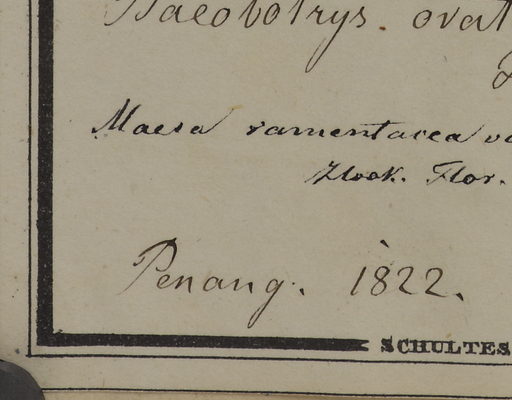 Baeobotrys. ovat
Maesa ramentacea va
Hook. Flor.
Penang. 1822.
SCHULTES